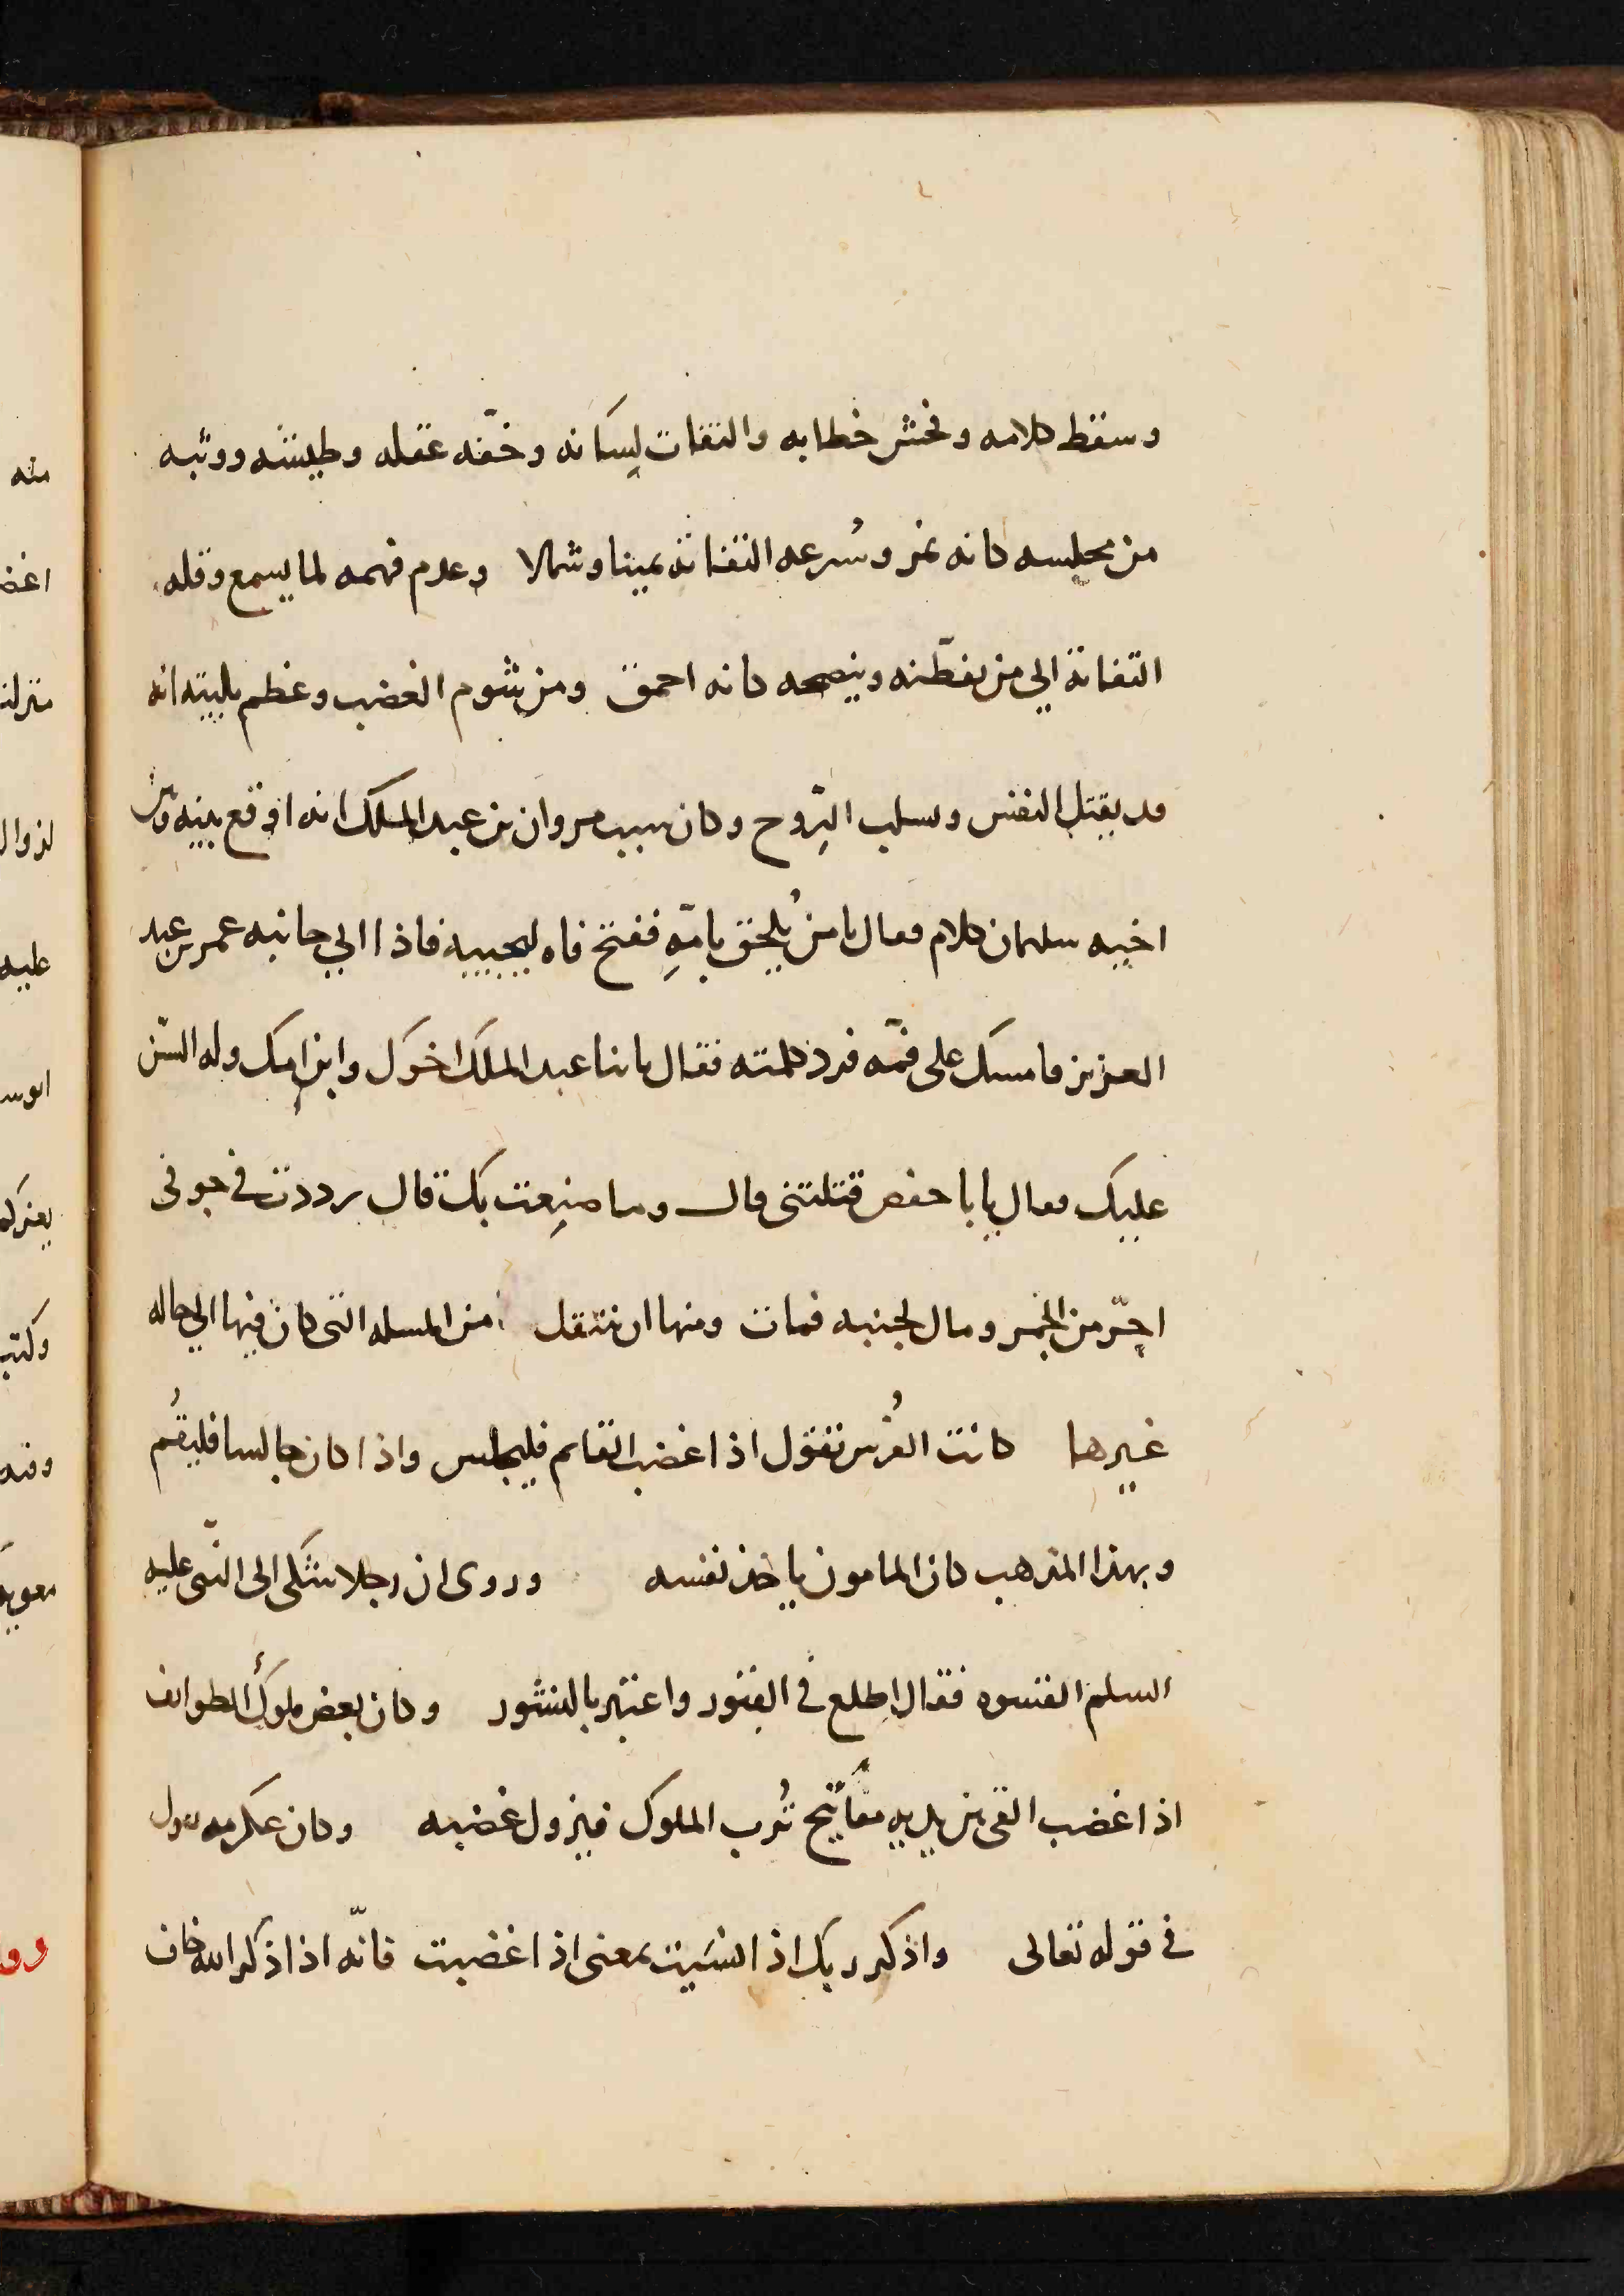 وسقط كلامه وفحش خطابه والتفات لسانه وخفّه عقله وطيشه ووثبه
من مجلسه كانه نمر وسُرعه التفاته يمينا وشمالا وعدم فهمه لما يسمع وقله
التفاته الي من يفطّنه وينصحه كانه احمق ومن شوم الغضب وعظم بليته انه
قد يقتل النفس ويسلب الرّوح وكان سبب مروان بن عبد الملك انه اوقع بينه وبين
اخيه سليمان كلام فقال يا من يُلحق بامّه ففتح فاه ليجيبه فاذا الي جانبه عمر بن عبد
العزيز فامسك على فمّه فرد كلمته فقال يا بنا عبد الملك اخوك وابن امك وله السّن
عليك فقال يا با حفص قتلتني قال وما صنعت بك قال رددت في جوفي
احرّ من الجمر ومال لجنبه فمات ومنها ان تنتقل من المسله التي كان فيها الي حاله
غيرها كانت الفُرس تقول اذا غضب القايم فليجلس واذا كان جالسا فليقُم
وبهذا المذهب كان المامون ياخذ نفسه وروى ان رجلا شكى الى النّبى عليه
السلم القسوه فقال اطلع في القبور واعتبر بالنشور وكان بعض ملوك الطوايف
اذا غضب القى بين يديه مفاتيح تُرب الملوك فيزول غضبه وكان عكرمه يقول
في قوله تعالى واذكر ربك اذا نسَيت بمعنى اذا غضبت فانّه اذا ذكر الله خاف